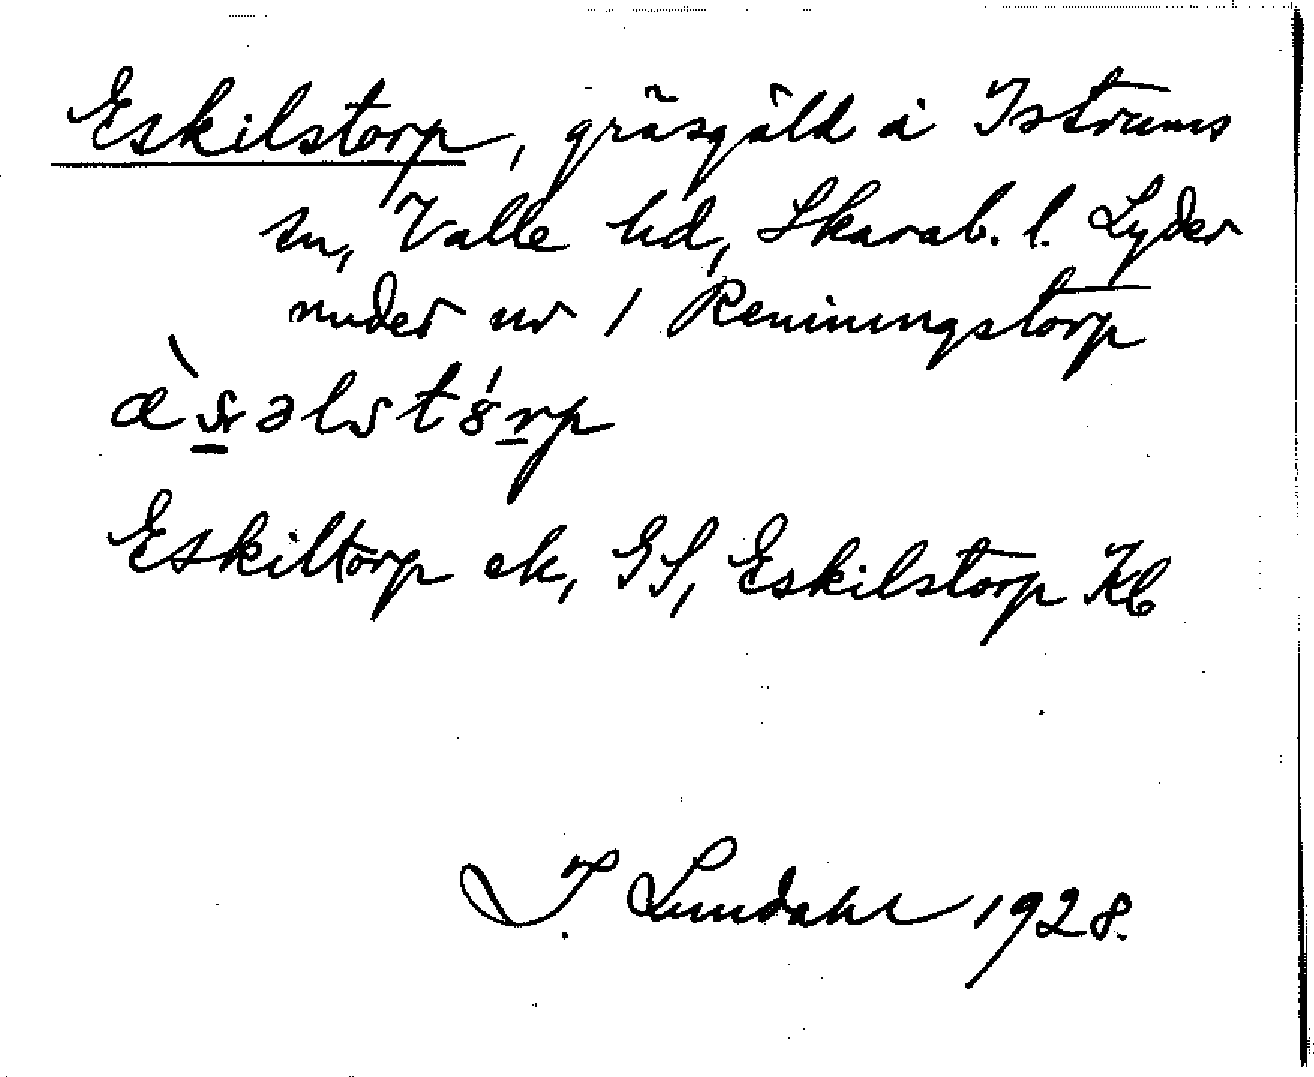 Eskilstorp, gräsgäld å Istrums
sn, Valle hd, Skarab. l. Lyder
under nr 1 Remningstorp
Eskiltorp ek, GS, Eskilstorp Kb
I. Lundahl 1928.